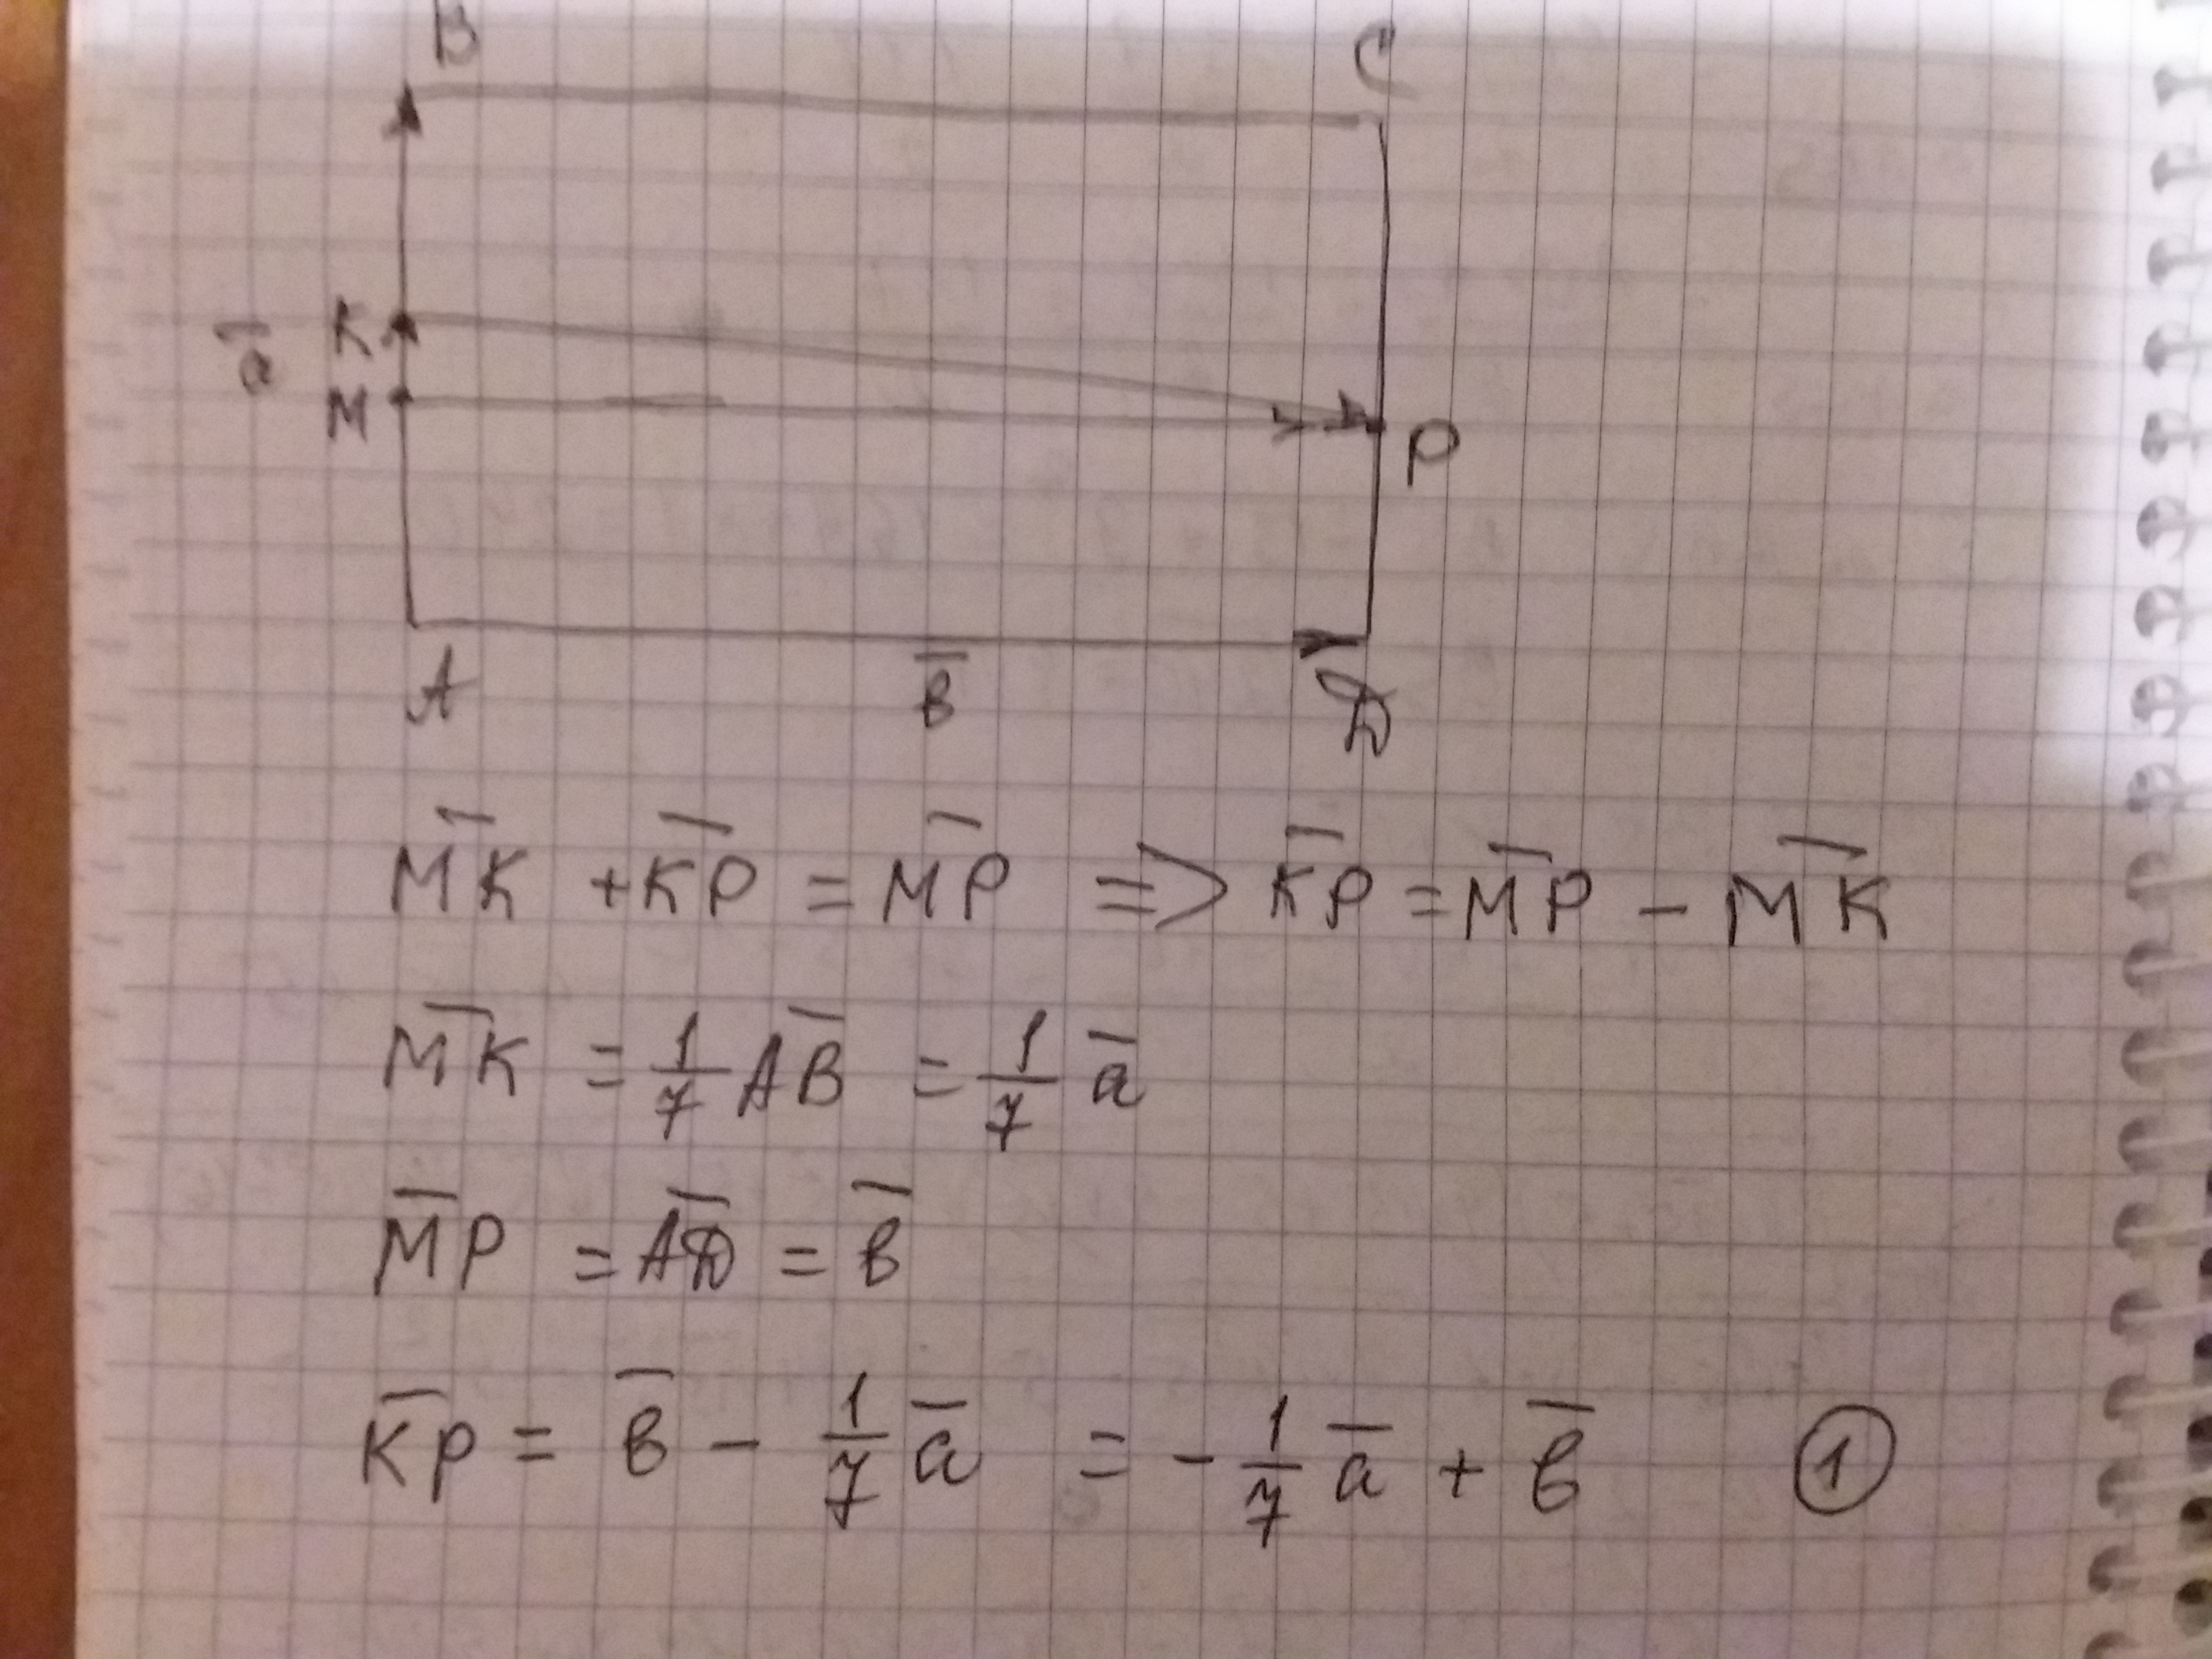 B C
K
a̅
M
P
A в̅ D
M̅K̅ + K̅P̅ = M̅P̅ => K̅P̅ = M̅P̅ - M̅K̅
M̅K̅ = 1/7 A̅B̅ = 1/7 a̅
M̅P̅ = A̅D̅ = в̅
K̅P̅ = в̅ - 1/7 a̅ = - 1/7 a̅ + в̅ ①